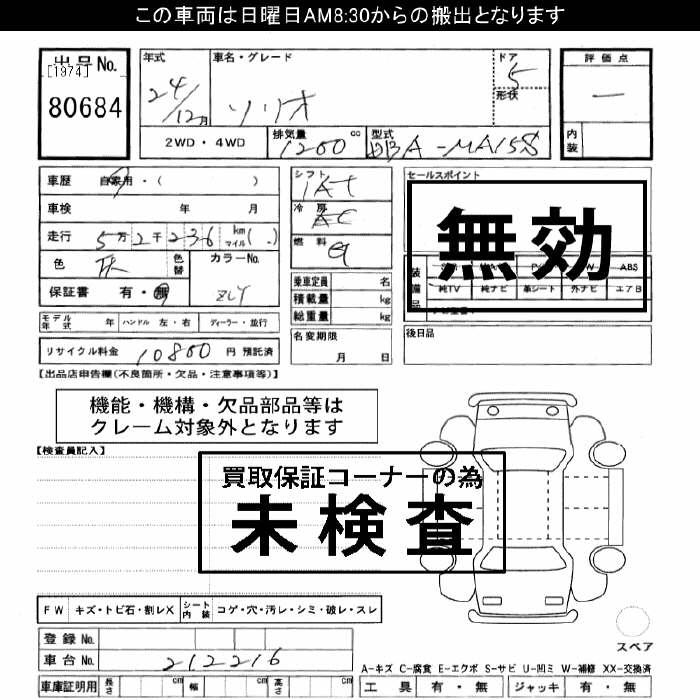 この車両は日曜日AM8:30からの搬出となります
出品No.
[1974]
80684
年式
24/12月
車名・グレード
ソリオ
ドア
5
形状
評価点
―
内装
2WD・4WD
排気量
1200 cc
型式
DBA-MA15S
車歴 自家用・( )
車検 年 月
走行 5万2千236 km マイル( . )
色 灰
色替
カラーNo.
ZLY
保証書 有・無
シフト
IAT
冷房
AC
燃料
G
乗車定員 名
積載量 kg
総重量 kg
セールスポイント
無効
装備品
ABS
純TV 純ナビ 革シート 外ナビ エアB
モデル年式 年 ハンドル 左・右 ディーラー・並行
リサイクル料金 10800 円 預託済
名変期限
月 日
後日品
【出品店申告欄(不良箇所・欠品・注意事項等)】
機能・機構・欠品部品等は
クレーム対象外となります
【検査員記入】
買取保証コーナーの為
未検査
FW キズ・トビ石・割レX シート内装 コゲ・穴・汚レ・シミ・破レ・スレ
スペア
登録No.
車台No. 212216
A-キズ C-腐食 E-エクボ S-サビ U-凹ミ W-補修 XX-交換済
車庫証明用 長さ cm 幅 cm 高さ cm
工具 有・無 ジャッキ 有・無